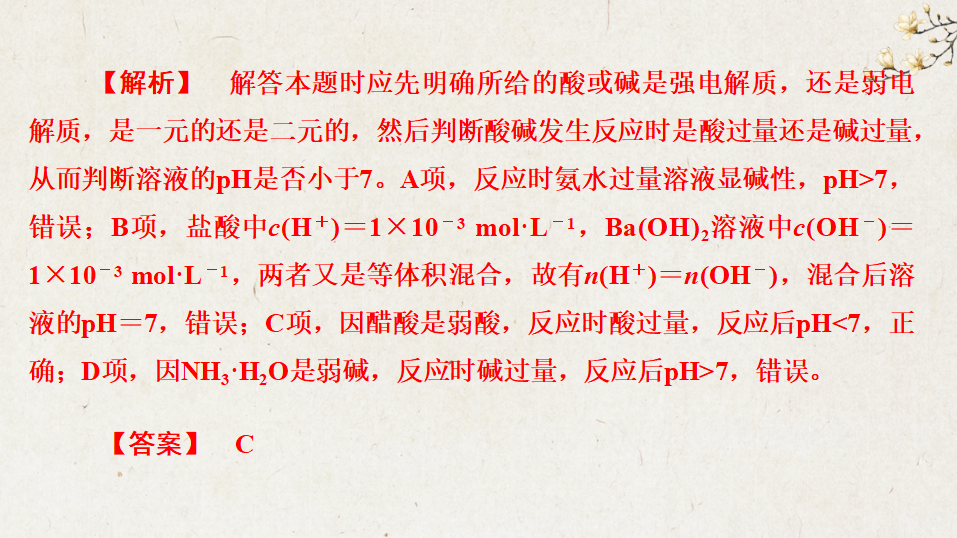 【解析】 解答本题时应先明确所给的酸或碱是强电解质，还是弱电
解质，是一元的还是二元的，然后判断酸碱发生反应时是酸过量还是碱过量，
从而判断溶液的pH是否小于7。A项，反应时氨水过量溶液显碱性，pH>7，
错误；B项，盐酸中c(H⁺)＝1×10⁻³ mol·L⁻¹，Ba(OH)₂溶液中c(OH⁻)＝
1×10⁻³ mol·L⁻¹，两者又是等体积混合，故有n(H⁺)＝n(OH⁻)，混合后溶
液的pH＝7，错误；C项，因醋酸是弱酸，反应时酸过量，反应后pH<7，正
确；D项，因NH₃·H₂O是弱碱，反应时碱过量，反应后pH>7，错误。
【答案】 C